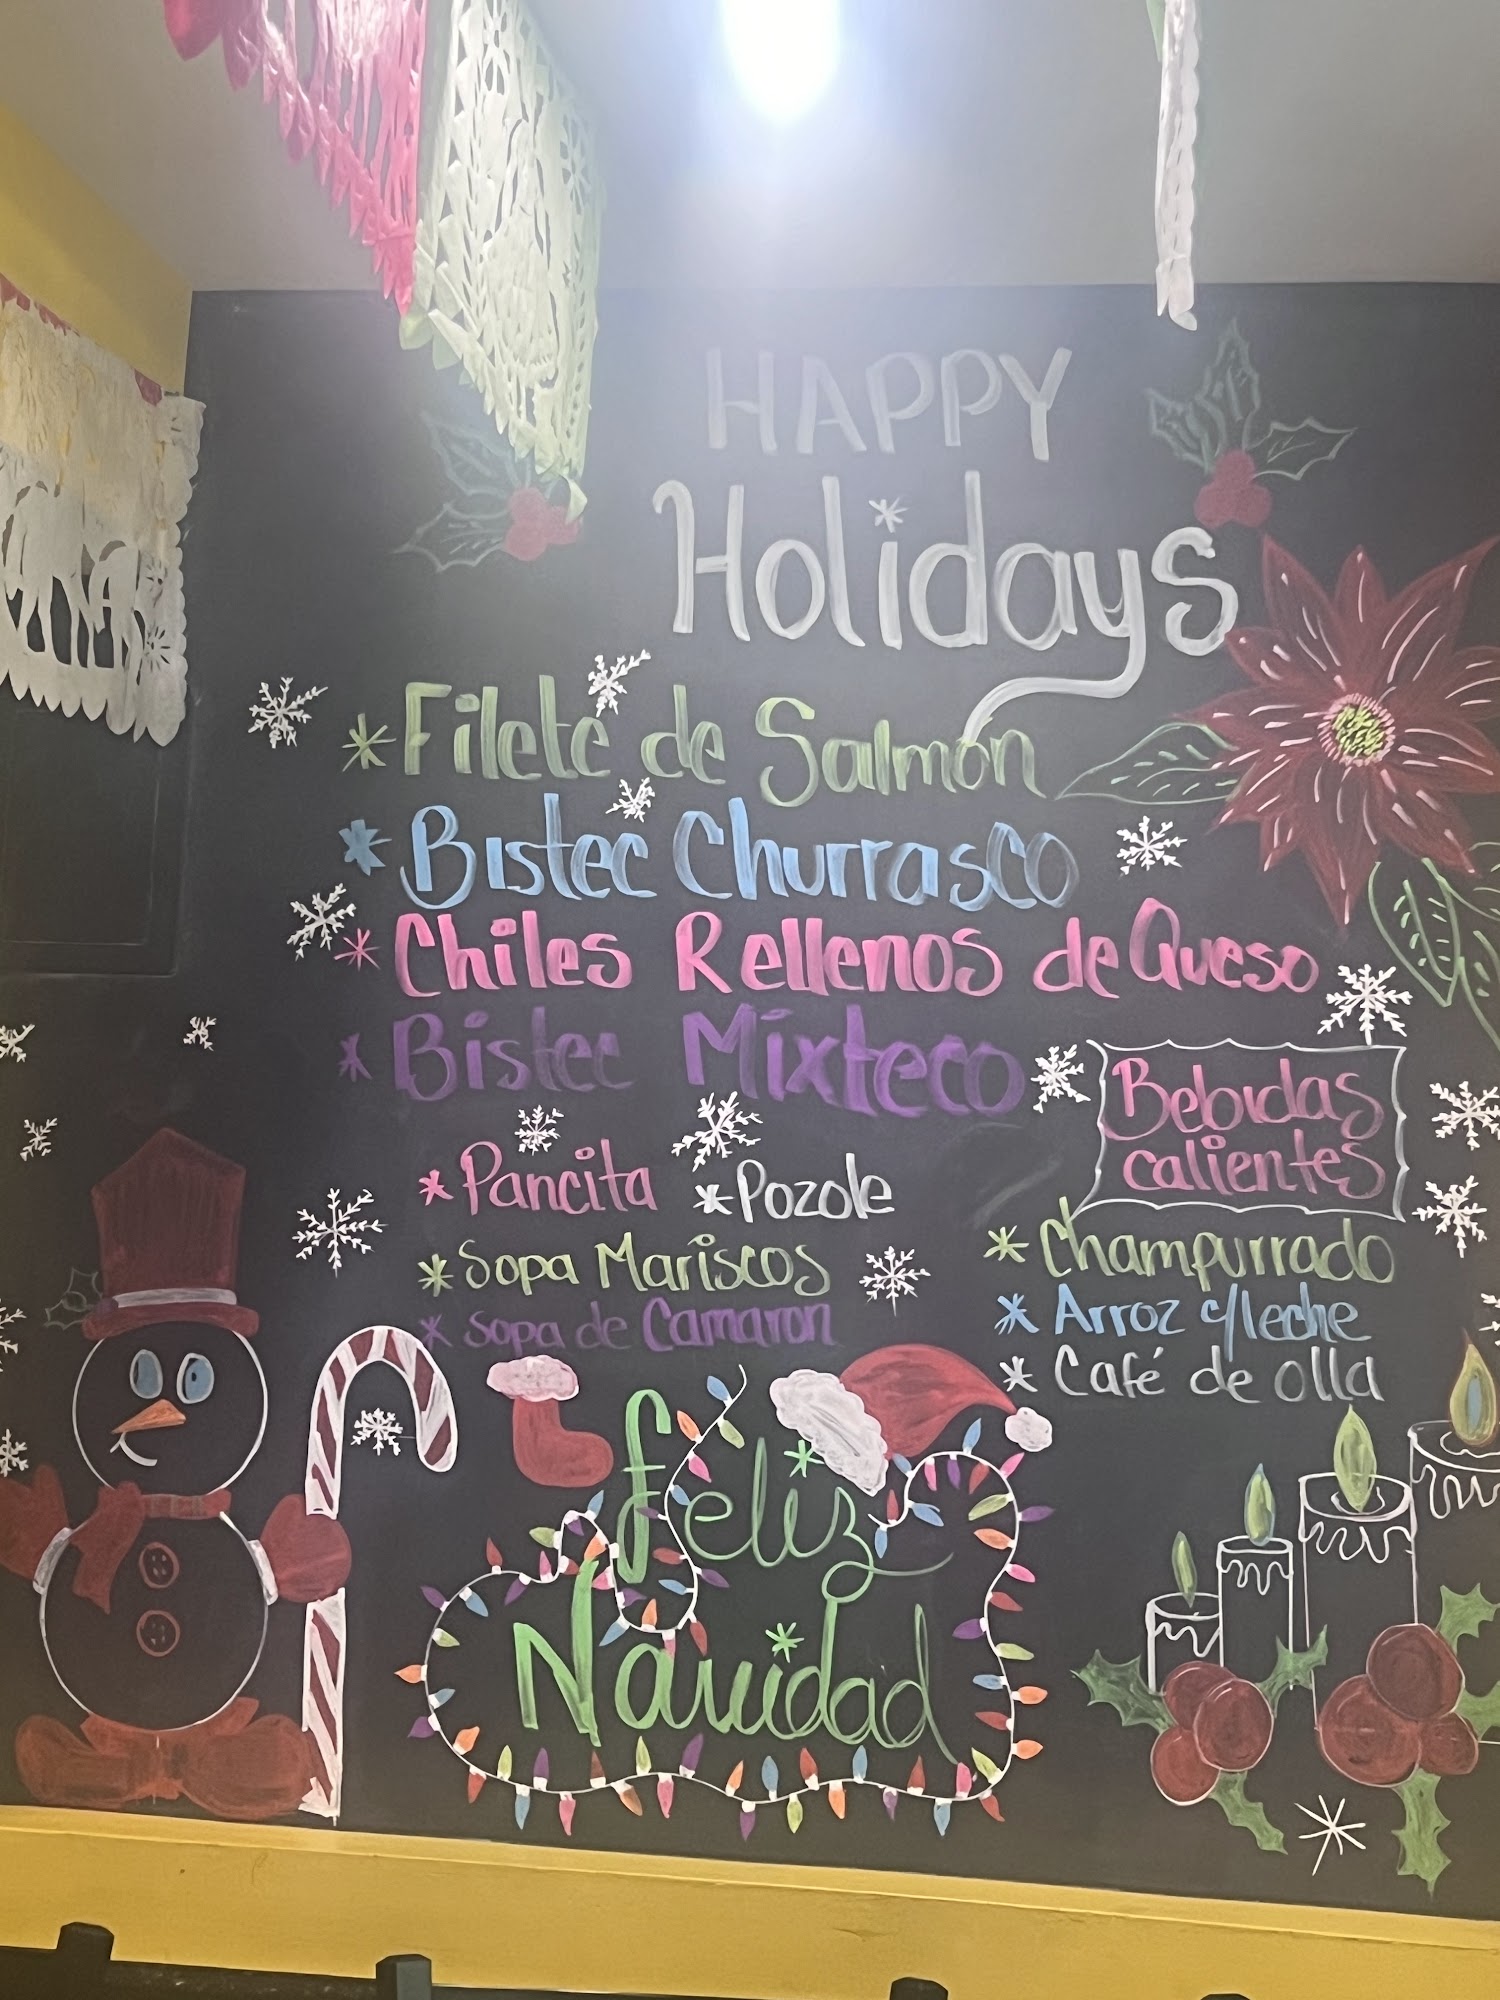 HAPPY
Holidays
* Filete de Salmon
* Bistec Churrasco
* Chiles Rellenos de Queso
* Bistec Mixteco
* Pancita * Pozole
* Sopa Mariscos
* Sopa de Camaron
Bebidas
calientes
* Champurrado
* Arroz c/leche
* Café de olla
Feliz
Navidad